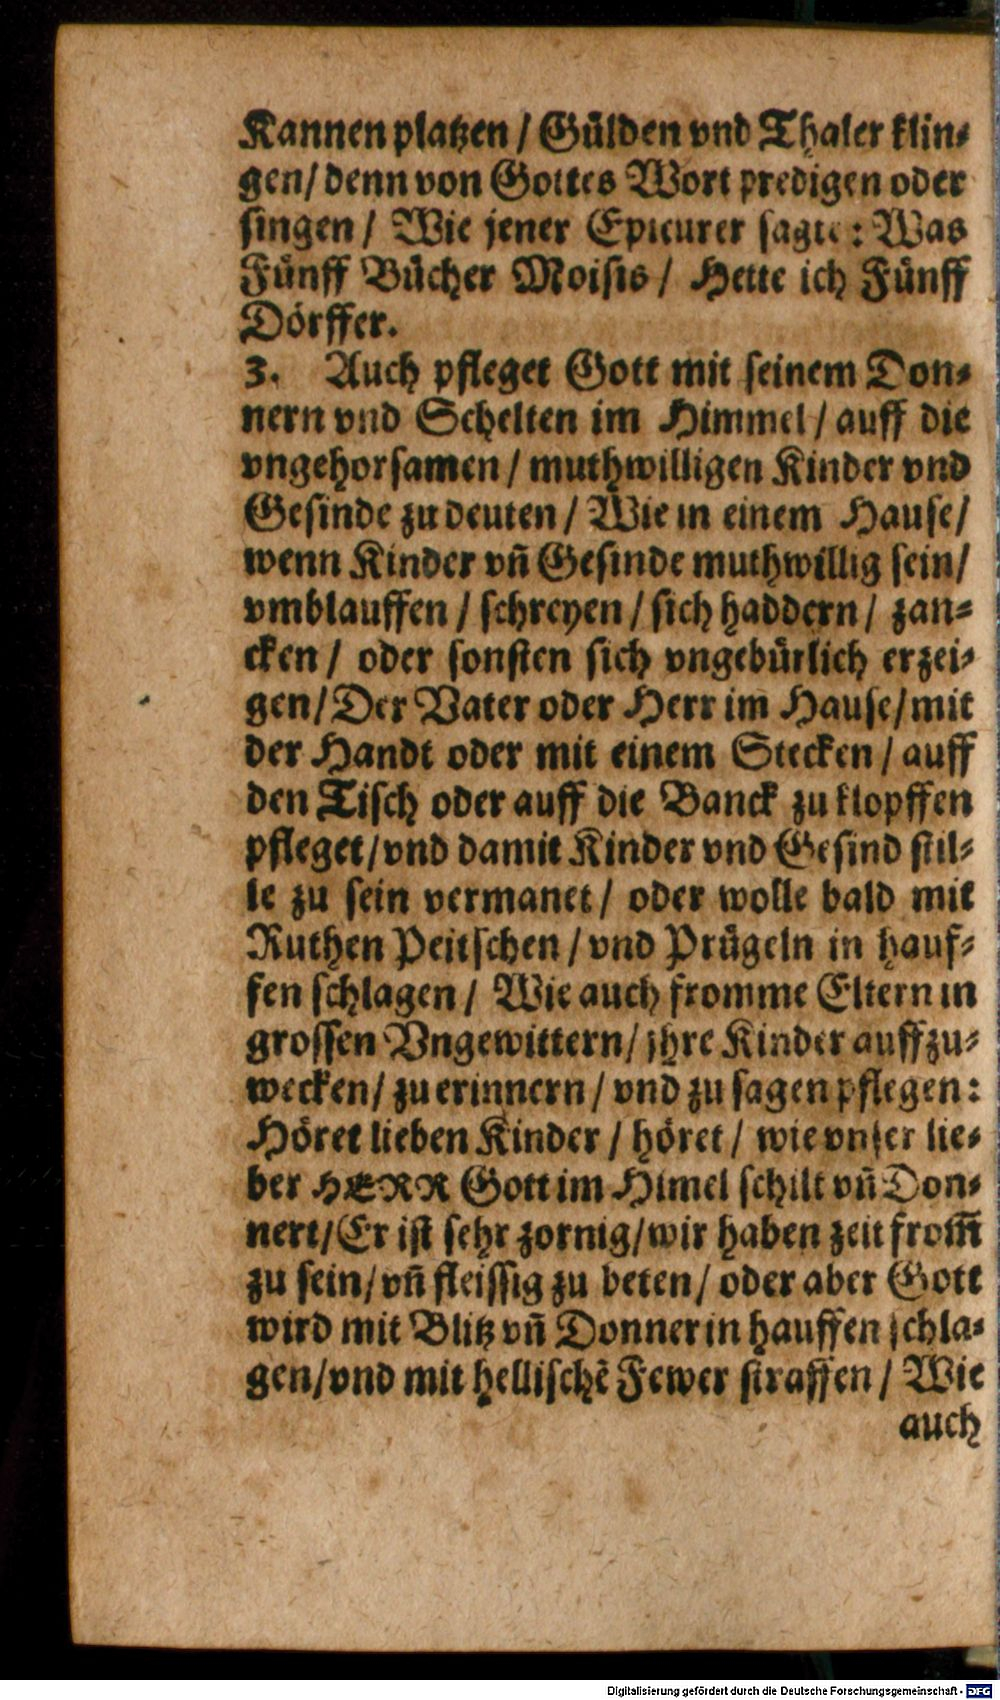 Kannen platzen / Gülden vnd Thaler klin-
gen / denn von Gottes Wort predigen oder
singen / Wie jener Epicurer sagte : Was
Fünff Bücher Moisis / Hette ich Fünff
Dörffer.
3. Auch pfleget Gott mit seinem Don-
nern vnd Schelten im Himmel / auff die
vngehorsamen / muthwilligen Kinder vnd
Gesinde zu deuten / Wie in einem Hause /
wenn Kinder vñ Gesinde muthwillig sein /
vmblauffen / schreyen / sich haddern / zan-
cken / oder sonsten sich vngebürlich erzei-
gen / Der Vater oder Herr im Hause / mit
der Handt oder mit einem Stecken / auff
den Tisch oder auff die Banck zu klopffen
pfleget / vnd damit Kinder vnd Gesind stil-
le zu sein vermanet / oder wolle bald mit
Ruthen Peitschen / vnd Prügeln in hauf-
fen schlagen / Wie auch fromme Eltern in
grossen Vngewittern / jhre Kinder auffzu-
wecken / zu erinnern / vnd zu sagen pflegen :
Höret lieben Kinder / höret / wie vnser lie-
ber HERR Gott im Himel schilt vñ Don-
nert / Er ist sehr zornig / wir haben zeit from̃
zu sein / vñ fleissig zu beten / oder aber Gott
wird mit Blitz vñ Donner in hauffen schla-
gen / vnd mit hellischẽ Fewer straffen / Wie
auch
Digitalisierung gefördert durch die Deutsche Forschungsgemeinschaft - DFG